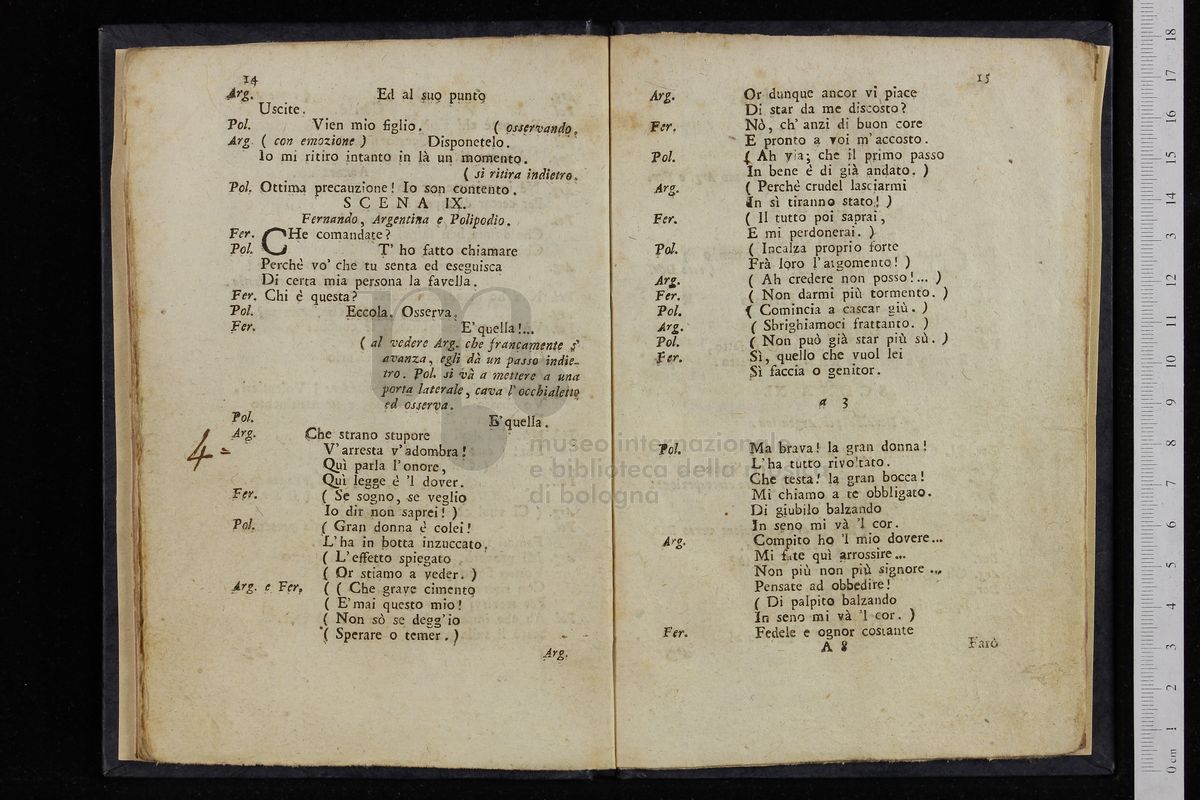 14
Arg. Ed al suo punto
Uscite.
Pol. Vien mio figlio. ( osservando.
Arg. ( con emozione ) Disponetelo.
Io mi ritiro intanto in là un momento.
( si ritira indietro.
Pol. Ottima precauzione! Io son contento.
SCENA IX.
Fernando, Argentina e Polipodio.
Fer. CHe comandate?
Pol. T' ho fatto chiamare
Perchè vo' che tu senta ed eseguisca
Di certa mia persona la favella.
Fer. Chi è questa?
Pol. Eccola. Osserva.
Fer. E' quella!...
( al vedere Arg. che francamente s'
avanza, egli dà un passo indie-
tro. Pol. si và a mettere a una
porta laterale, cava l'occhialetto
ed osserva.
Pol. E' quella.
4=
Arg. Che strano stupore
V'arresta v'adombra!
Quì parla l'onore,
Quì legge è 'l dover.
Fer. ( Se sogno, se veglio
Io dir non saprei! )
Pol. ( Gran donna è colei!
L'ha in botta inzuccato.
( L'effetto spiegato
( Or stiamo a veder. )
Arg. e Fer. ( ( Che grave cimento
( E'mai questo mio!
( Non sò se degg'io
( Sperare o temer. )
Arg.
15
Arg. Or dunque ancor vi piace
Di star da me discosto?
Fer. Nò, ch' anzi di buon core
E pronto a voi m'accosto.
Pol. ( Ah via; che il primo passo
In bene è di già andato. )
Arg. ( Perchè crudel lasciarmi
In sì tiranno stato! )
Fer. ( Il tutto poi saprai,
E mi perdonerai. )
Pol. ( Incalza proprio forte
Frà loro l'argomento! )
Arg. ( Ah credere non posso!... )
Fer. ( Non darmi più tormento. )
Pol. ( Comincia a cascar giù. )
Arg. ( Sbrighiamoci frattanto. )
Pol. ( Non può già star più sù. )
Fer. Sì, quello che vuol lei
Si faccia o genitor.
a 3
Pol. Ma brava! la gran donna!
L'ha tutto rivo'tato.
Che testa! la gran bocca!
Mi chiamo a te obbligato.
Di giubilo balzando
In seno mi và 'l cor.
Arg. Compito ho 'l mio dovere...
Mi fate quì arrossire...
Non più non più signore...
Pensate ad obbedire!
( Di palpito balzando
In seno mi và 'l cor. )
Fer. Fedele e ognor costante
A 8 Farò
museo internazionale
e biblioteca della musica
di bologna
0 cm 1 2 3 4 5 6 7 8 9 10 11 12 13 14 15 16 17 18